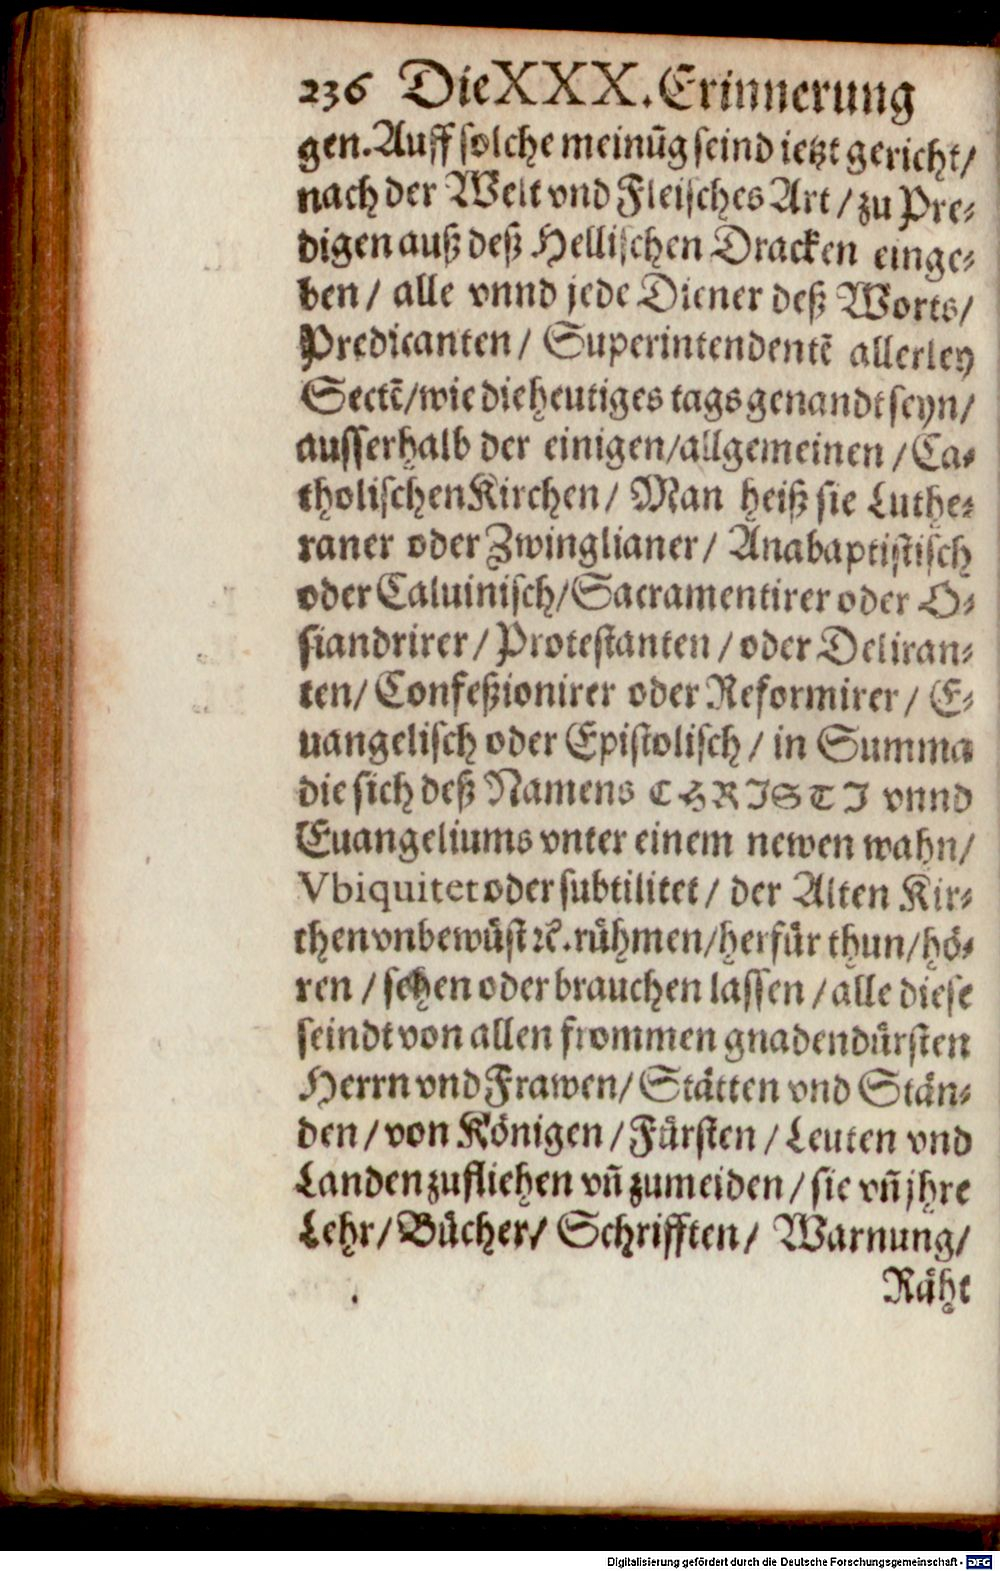 236 Die XXX. Erinnerung
gen. Auff solche meinūg seind ietzt gericht/
nach der Welt vnd Fleisches Art / zu Pre-
digen auß deß Hellischen Dracken einge-
ben / alle vnnd jede Diener deß Worts/
Predicanten / Superintendentē allerley
Sectē/wie die heutiges tags genandt seyn/
ausserhalb der einigen/allgemeinen / Ca-
tholischen Kirchen / Man heiß sie Luthe-
raner oder Zwinglianer / Anabaptistisch
oder Caluinisch/Sacramentirer oder O-
siandrirer / Protestanten / oder Deliran-
ten/ Confeßionirer oder Reformirer / E-
uangelisch oder Epistolisch / in Summa
die sich deß Namens CHRISTI vnnd
Euangeliums vnter einem newen wahn/
Vbiquitet oder subtilitet / der Alten Kir-
chen vnbewüst ꝛc. rühmen/herfür thun/hö-
ren / sehen oder brauchen lassen / alle diese
seindt von allen frommen gnadendürsten
Herrn vnd Frawen/ Stätten vnd Stän-
den / von Königen / Fürsten / Leuten vnd
Landen zufliehen vn̄ zumeiden / sie vn̄ jhre
Lehr/ Bücher/ Schrifften/ Warnung/
Räht
Digitalisierung gefördert durch die Deutsche Forschungsgemeinschaft - DFG